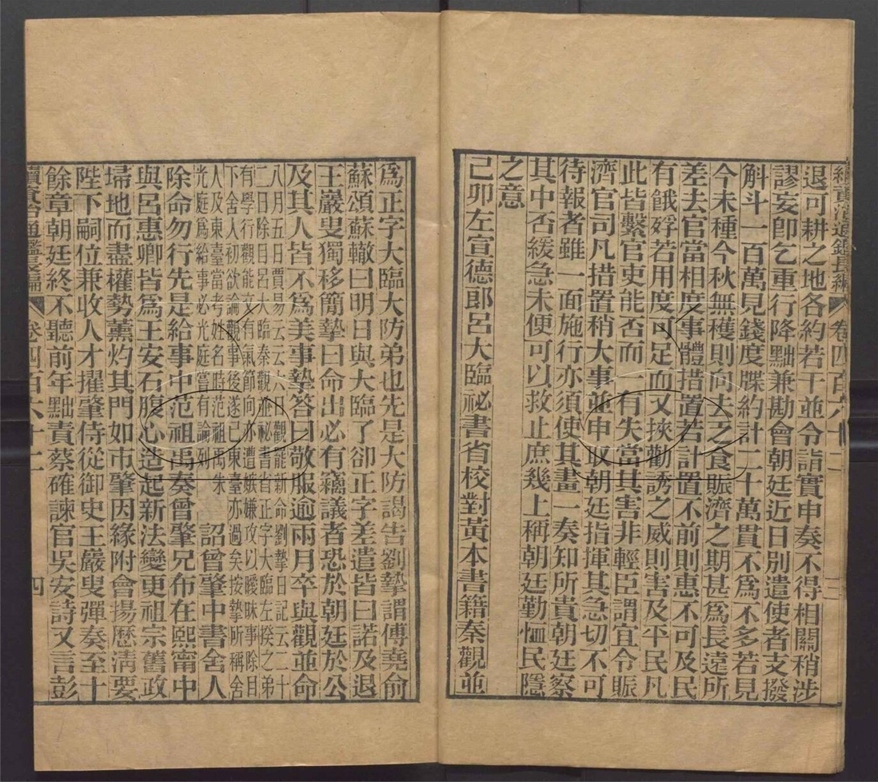 退可耕之地各約若干並令詣實申奏不得相關稍涉
謬妄卽乞重行降黜兼勘會朝廷近日別遣使者支撥
斛斗一百萬見錢度牒約計二十萬貫不爲不多若見
今未種今秋無穫則向去乏食賑濟之期甚爲長遠所
差去官當相度事體措置若計置不前則惠不可及民
有餓殍若用度可足而又挾勸誘之威則害及平民凡
此皆繫官吏能否而一有失當其害非輕臣謂宜令賑
濟官司凡措置稍大事並申取朝廷指揮其急切不可
待報者雖一面施行亦須使其畫一奏知所貴朝廷察
其中否緩急未便可以救止庶幾上稱朝廷勤恤民隱
之意
己卯左宣德郎呂大臨祕書省校對黃本書籍秦觀並
續資治通鑑長編 卷四百六十二 三
爲正字大臨大防弟也先是大防謁告劉摯謂傅堯俞
蘇頌蘇轍曰明日與大臨了卻正字差遣皆曰諾及退
王巖叟獨移簡摯曰命出必有竊議者恐於朝廷於公
及其人皆不爲美事摯答曰敬服逾兩月卒與觀並命
八月五日賈易云云六日觀能新命劉摯日記云二十
二日除目呂大臨秦觀並祕書省正字大臨左揆之弟
有學行觀能文有氣節向亦遭嫉嫌攻以曖昧事除目
下舍人初欲論觀事後遂已東臺亦過矣按摯所稱舍
人及東臺當考姓名時范祖禹朱
光庭爲給事必光庭嘗有論列
詔曾肇中書舍人
除命勿行先是給事中范祖禹奏曾肇兄布在熙甯中
與呂惠卿皆爲王安石腹心造起新法變更祖宗舊政
埽地而盡權勢薰灼其門如市肇因緣附會揚歷淸要
陛下嗣位兼收人才擢肇侍從御史王巖叟彈奏至十
餘章朝廷終不聽前年黜責蔡確諫官吳安詩又言彭
續資治通鑑長編 卷四百六十二 四